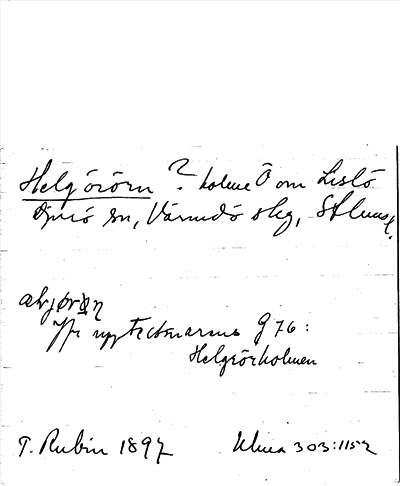 Helgörörn ? holme Ö om Lislö
Djurö sn, Värmdö skg, Sthlms l.
Jfr upptecknarens G 76:
Helgrörholmen
T. Rubin 1897
Ulma 303:1152